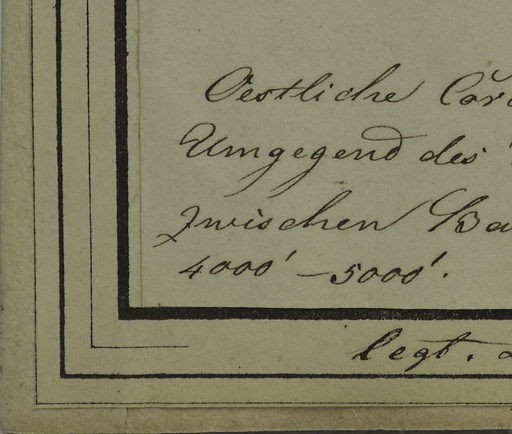 Oestliche Cor
Umgegend des
zwischen Ba
4000' – 5000'.
legt.